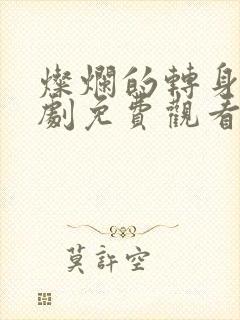 燦爛的轉身
劇免費觀看
莫許空